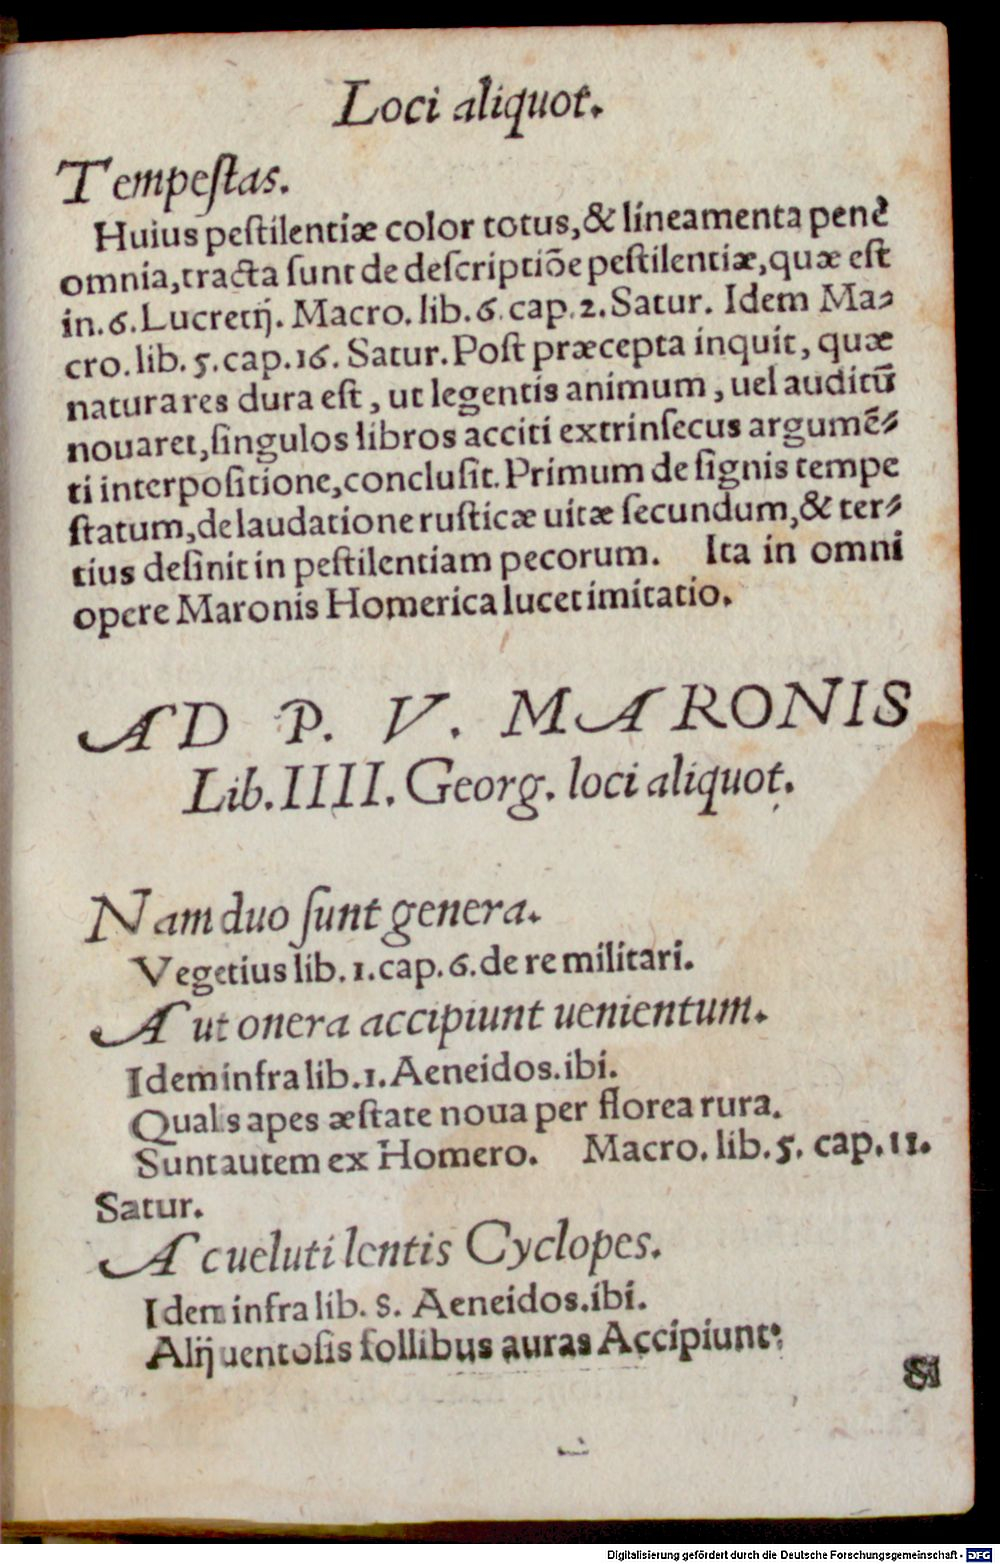 Loci aliquot.
Tempeſtas.
Huius peſtilentiæ color totus,& lineamenta penè
omnia,tracta ſunt de deſcriptiōe peſtilentiæ,quæ eſt
in.6.Lucretij. Macro.lib.6.cap.2.Satur. Idem Ma⸗
cro.lib.5.cap.16. Satur.Poſt præcepta inquit, quæ
natura res dura eſt, ut legentis animum, uel auditū
nouaret,ſingulos libros acciti extrinſecus argumē⸗
ti interpoſitione,concluſit.Primum de ſignis tempe
ſtatum,de laudatione ruſticæ uitæ ſecundum,& ter⸗
tius deſinit in peſtilentiam pecorum. Ita in omni
opere Maronis Homerica lucet imitatio.
AD P. V. MARONIS
Lib.IIII.Georg. loci aliquot.
Nam duo ſunt genera.
Vegetius lib.1.cap.6.de re militari.
Aut onera accipiunt uenientum.
Idem infra lib.1.Aeneidos.ibi.
Qual s apes æſtate noua per florea rura.
Sunt autem ex Homero. Macro.lib.5. cap.11.
Satur.
Ac ueluti lentis Cyclopes.
Idem infra lib. 8. Aeneidos.ibi.
Alij uentoſis follibus auras Accipiunt:
Si
Digitalisierung gefördert durch die Deutsche Forschungsgemeinschaft - DFG